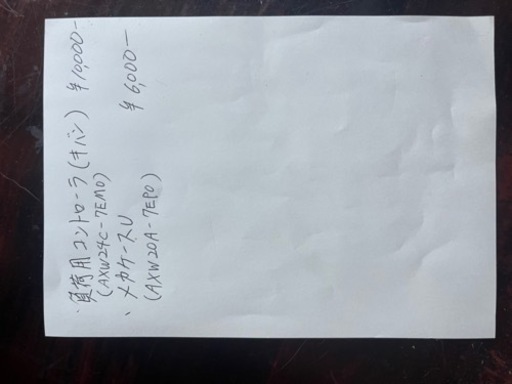 、負荷用コントローラ(キバン) ¥10,000-
(AXW24C-7EM0)
、メカケースU ¥6,000-
(AXW20A-7EP0)